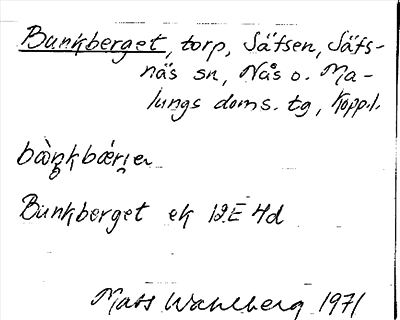 Bunkberget, torp, Säfsen, Säfs-
näs sn, Nås o. Ma-
lungs doms. tg, Kopp.l.
Bunkberget ek 12E 4d
Mats Wahlberg 1971